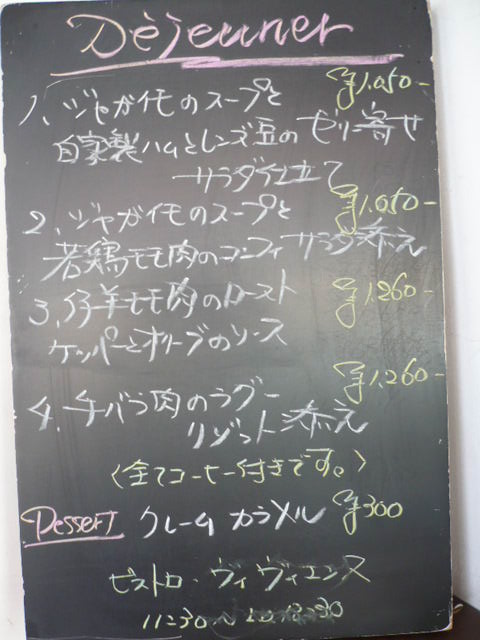 Déjeuner
1、ジャガイモのスープと ¥1.050-
自家製ハムとレンズ豆のゼリー寄せ
サラダ仕立て
2、ジャガイモのスープと ¥1.050-
若鶏モモ肉のコンフィ サラダ添え
3、仔羊モモ肉のロースト ¥1.260-
ケッパーとオリーブのソース
¥1.260-
4、牛バラ肉のラグー
リゾット添え
(全てコーヒー付きです。)
Dessert クレーム カラメル ¥300
ビストロ・ヴィヴィエンヌ
11:30〜